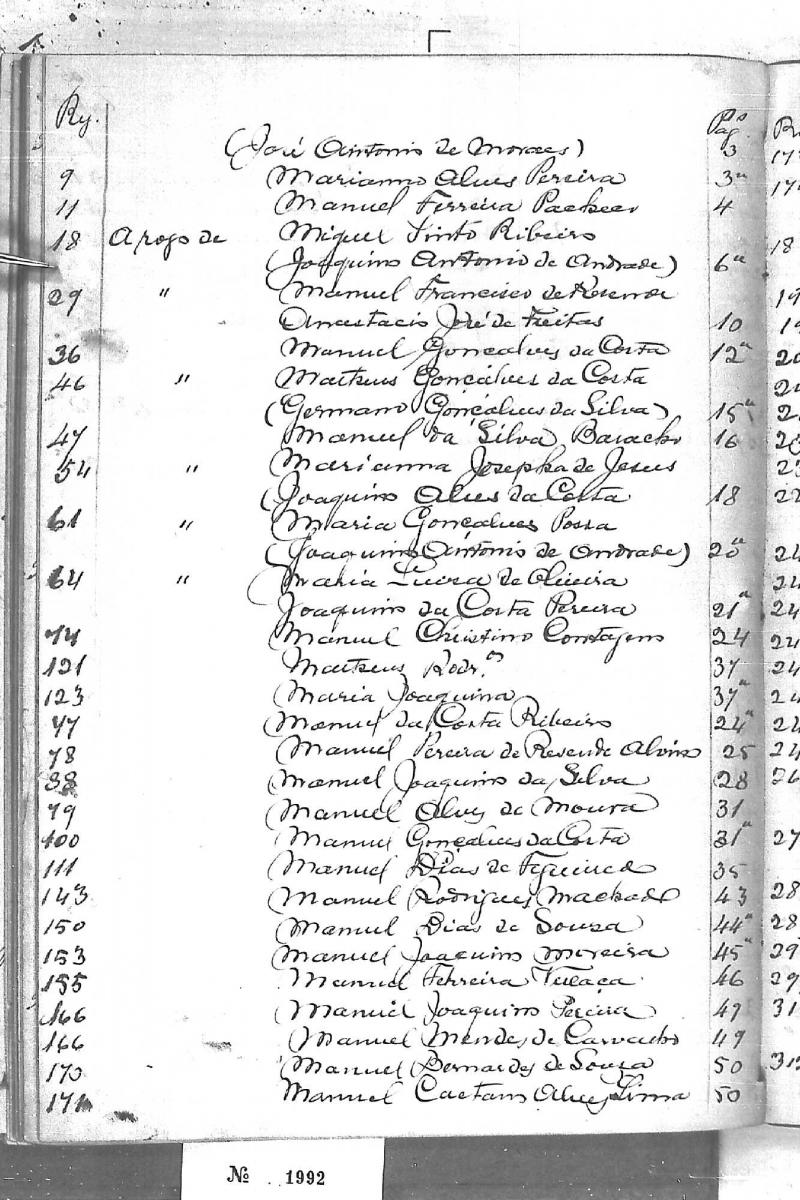 Rg. Pag.s
(José Antonio de Moraes) 3
9 Marianno Alves Pereira 3v
11 Manuel Ferreira Pacheco 4
18 A rogo de Miguel Pinto Ribeiro
(Joaquim Antonio de Andrade) 6v
29 " Manuel Francisco de Resende
Anastacio José de Freitas 10
36 Manuel Gonçalves da Costa 12v
46 " Matheus Gonçalves da Costa
(Germano Gonçalves da Silva) 15v
47 Manuel da Silva Baracho 16
54 " Marianna Josepha de Jesus
(Joaquim Alves da Costa 18
61 " Maria Gonçalves
(Joaquim Antonio de Andrade) 20v
64 " Maria Luiza de Oliveira
Joaquim da Costa Pereira 21v
74 Manuel Christino Contagem 24
121 Matheus Rodr.es 37
123 Maria Joaquina 37v
77 Manuel da Costa Ribeiro 24v
78 Manuel Pereira de Resende Alvim 25
88 Manuel Joaquim da Silva 28
79 Manuel Alves de Moura 31
100 Manuel Gonçalves da Costa 31v
111 Manuel Dias de Figueiredo 35
143 Manuel Rodrigues Machado 43
150 Manuel Dias de Souza 44v
153 Manuel Joaquim Moreira 45v
155 Manuel Ferreira 46
166 Manuel Joaquim Pereira 49
166 Manuel Mendes de Carvalho 49
170 Manuel Bernardes de Souza 50
171 Manuel Caetano Alves Lima 50
№ 1992